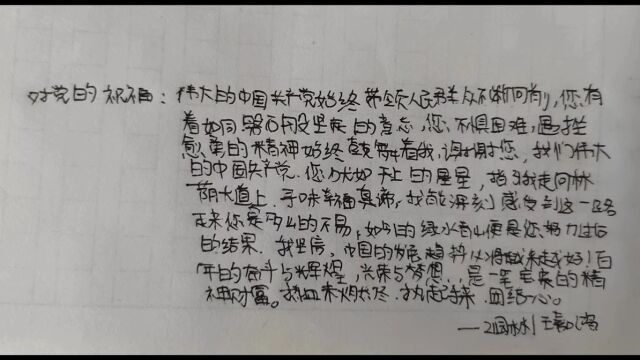 对党的祝福：伟大的中国共产党始终带领人民群众不断向前，您有
着如同磐石般坚定的意志，您不惧困难，遇挫
愈勇的精神始终鼓舞着我，谢谢您，我们伟大
的中国共产党.您犹如天上的星星，指引我走向林
荫大道上.寻味幸福真谛，我能深刻感受到这一路
走来你是多么的不易，如今的绿水青山便是您努力过后
的结果.我坚信，中国的发展趋势必将越来越好！百
年的奋斗与辉煌，光荣与梦想，是一笔宝贵的精
神财富。热血未